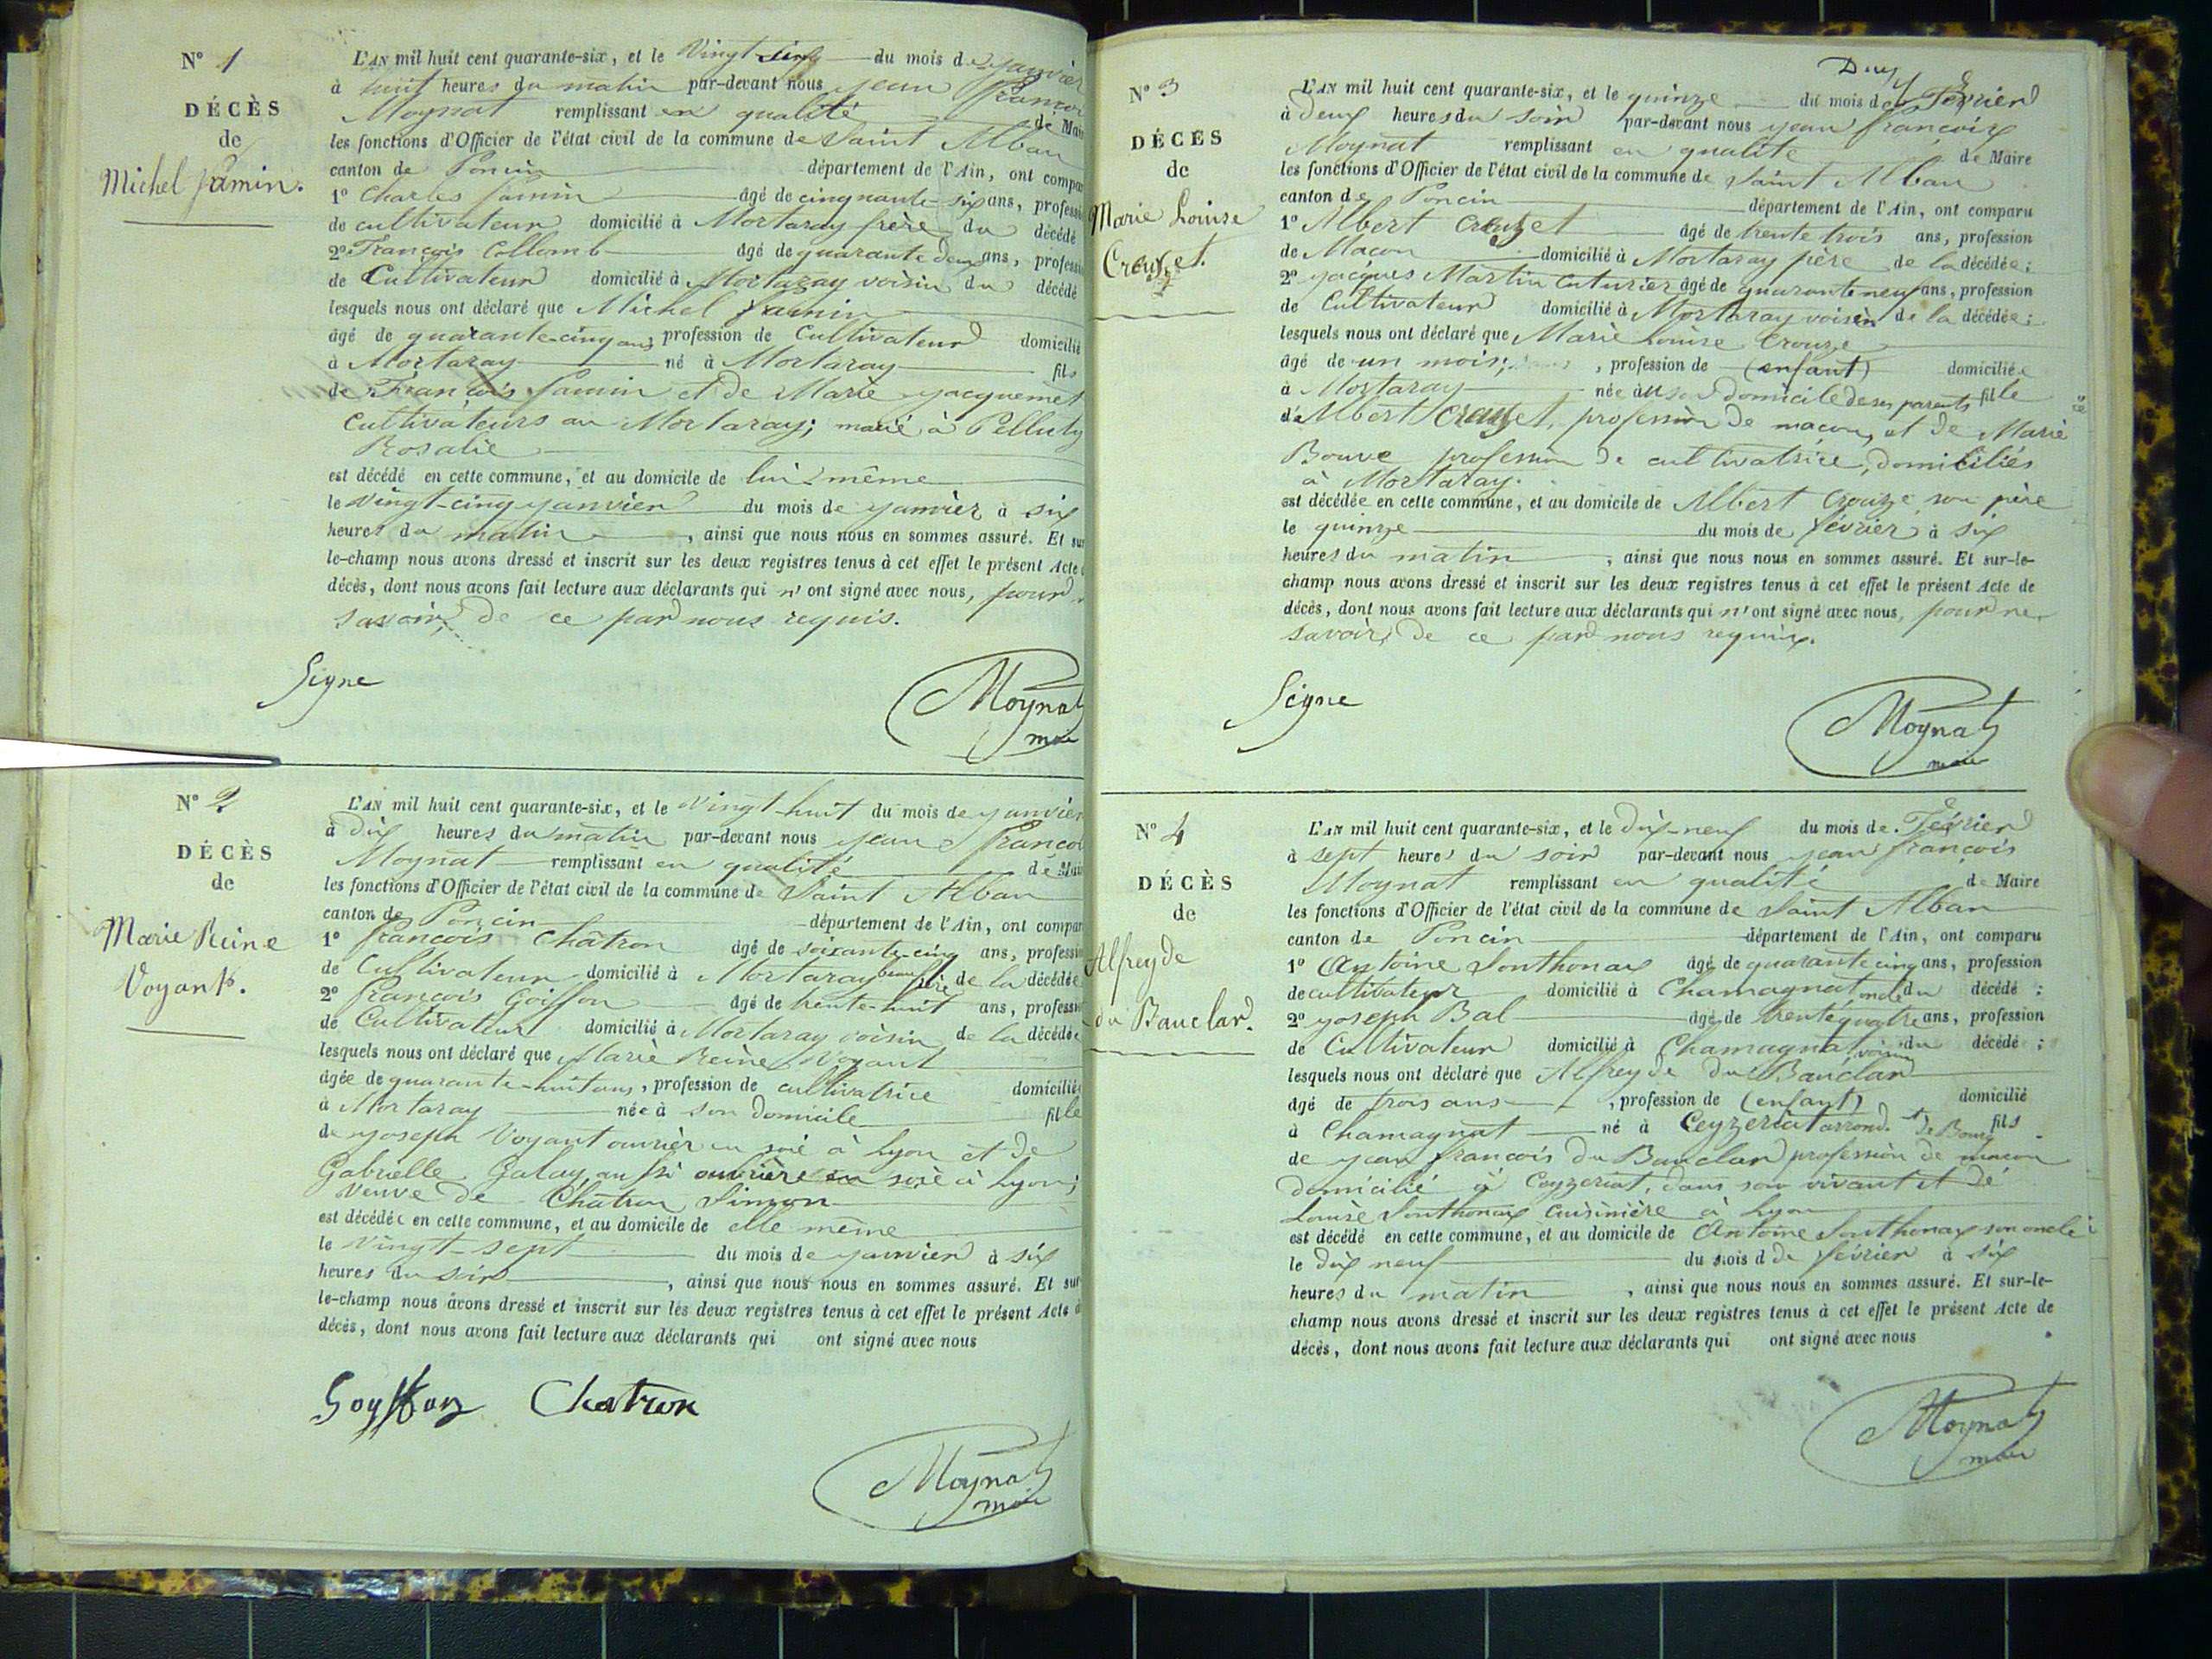 N° 1
DÉCÈS
de
Michel Jamin.
L'AN mil huit cent quarante-six, et le Vingt-cinq du mois de janvier
à huit heures du matin par-devant nous jean françois
Moynat remplissant en qualité de Maire
les fonctions d'Officier de l'état civil de la commune de Saint Alban
canton de Poncin département de l'Ain, ont comparu
1° Charles Jamin âgé de cinquante-six ans, profession
de cultivateur domicilié à Mortaray frère du décédé
2° François Collomb âgé de quarante deux ans, profession
de Cultivateur domicilié à Mortaray voisin du décédé
lesquels nous ont déclaré que Michel Jamin
âgé de quarante-cinq ans profession de Cultivateur domicilié
à Mortaray né à Mortaray fils
de François Jamin et de Marie jacquemet
Cultivateurs au Mortaray; marié à Pelluty
Rosalie
est décédé en cette commune, et au domicile de lui même
le vingt-cinq janvier du mois de janvier à six
heures du matin, ainsi que nous nous en sommes assuré. Et sur
le-champ nous avons dressé et inscrit sur les deux registres tenus à cet effet le présent Acte
décès, dont nous avons fait lecture aux déclarants qui n'ont signé avec nous, pour
savoir, de ce par nous requis.
Signe
Moynat
maire
N° 2
DÉCÈS
de
Marie Reine
Voyant.
L'AN mil huit cent quarante-six, et le vingt-huit du mois de janvier
à dix heures du matin par-devant nous jean françois
Moynat remplissant en qualité de Maire
les fonctions d'Officier de l'état civil de la commune de Saint Alban
canton de Poncin département de l'Ain, ont comparu
1° françois Châtron âgé de soixante-cinq ans, profession
de Cultivateur domicilié à Mortaray beau père de la décédée
2° françois Goiffon âgé de trente-huit ans, profession
de Cultivateur domicilié à Mortaray voisin de la décédée
lesquels nous ont déclaré que Marie Reine Voyant
âgée de quarante-huit ans, profession de cultivatrice domiciliée
à Mortaray née à son domicile fille
de joseph Voyant ouvrier en soie à Lyon et de
Gabrielle Galay aussi ouvrière en soie à Lyon;
veuve de Châtron Simon
est décédée en cette commune, et au domicile de elle même
le vingt-sept du mois de janvier à six
heures du soir, ainsi que nous nous en sommes assuré. Et sur
le-champ nous avons dressé et inscrit sur les deux registres tenus à cet effet le présent Acte
décès, dont nous avons fait lecture aux déclarants qui ont signé avec nous
Goyffon Chatron
Moynat
maire
N° 3
DÉCÈS
de
Marie Louise
Creuzet.
L'AN mil huit cent quarante-six, et le quinze du mois de Février
à Deux heures du soir par-devant nous jean françois
Moynat remplissant en qualité de Maire
les fonctions d'Officier de l'état civil de la commune de Saint Alban
canton de Poncin département de l'Ain, ont comparu
1° Albert Creuzet âgé de trente trois ans, profession
de Maçon domicilié à Mortaray père de la décédée;
2° jacques Martin Cuturier âgé de quarante neuf ans, profession
de Cultivateur domicilié à Mortaray voisin de la décédée;
lesquels nous ont déclaré que Marie Louise Crouze
âgé de un mois; profession de (enfant) domiciliée
à Mortaray née au domicile de ses parents fille
d'Albert Creuzet, profession de maçon, et de Marie
Bouve profession de cultivatrice, domiciliés
à Mortaray.
est décédée en cette commune, et au domicile de Albert Crouze son père
le quinze du mois de février à six
heures du matin, ainsi que nous nous en sommes assuré. Et sur-le-
champ nous avons dressé et inscrit sur les deux registres tenus à cet effet le présent Acte de
décès, dont nous avons fait lecture aux déclarants qui n'ont signé avec nous, pour ne
savoir, de ce par nous requis.
Signe
Moynat
maire
N° 4
DÉCÈS
de
Alfreyde
du Bauclar.
L'AN mil huit cent quarante-six, et le dix-neuf du mois de Février
à sept heures du soir par-devant nous jean françois
Moynat remplissant en qualité de Maire
les fonctions d'Officier de l'état civil de la commune de Saint Alban
canton de Poncin département de l'Ain, ont comparu
1° Antoine Southonax âgé de quarante cinq ans, profession
de cultivateur domicilié à Chamagnat oncle du décédé;
2° joseph Bal âgé de trente quatre ans, profession
de Cultivateur domicilié à Chamagnat voisin du décédé;
lesquels nous ont déclaré que Alfreyde du Bauclar
âgé de trois ans, profession de (enfant) domicilié
à Chamagnat né à Ceyzeriat arrond.t de Bourg fils
de jean françois du Bauclar profession de maçon
domicilié à Ceyzeriat, dans son vivant et de
Louise Southonax cuisinière à Lyon
est décédé en cette commune, et au domicile de Antoine Southonax son oncle
le dix neuf du mois d de février à six
heures du matin, ainsi que nous nous en sommes assuré. Et sur-le-
champ nous avons dressé et inscrit sur les deux registres tenus à cet effet le présent Acte de
décès, dont nous avons fait lecture aux déclarants qui ont signé avec nous
Moynat
maire